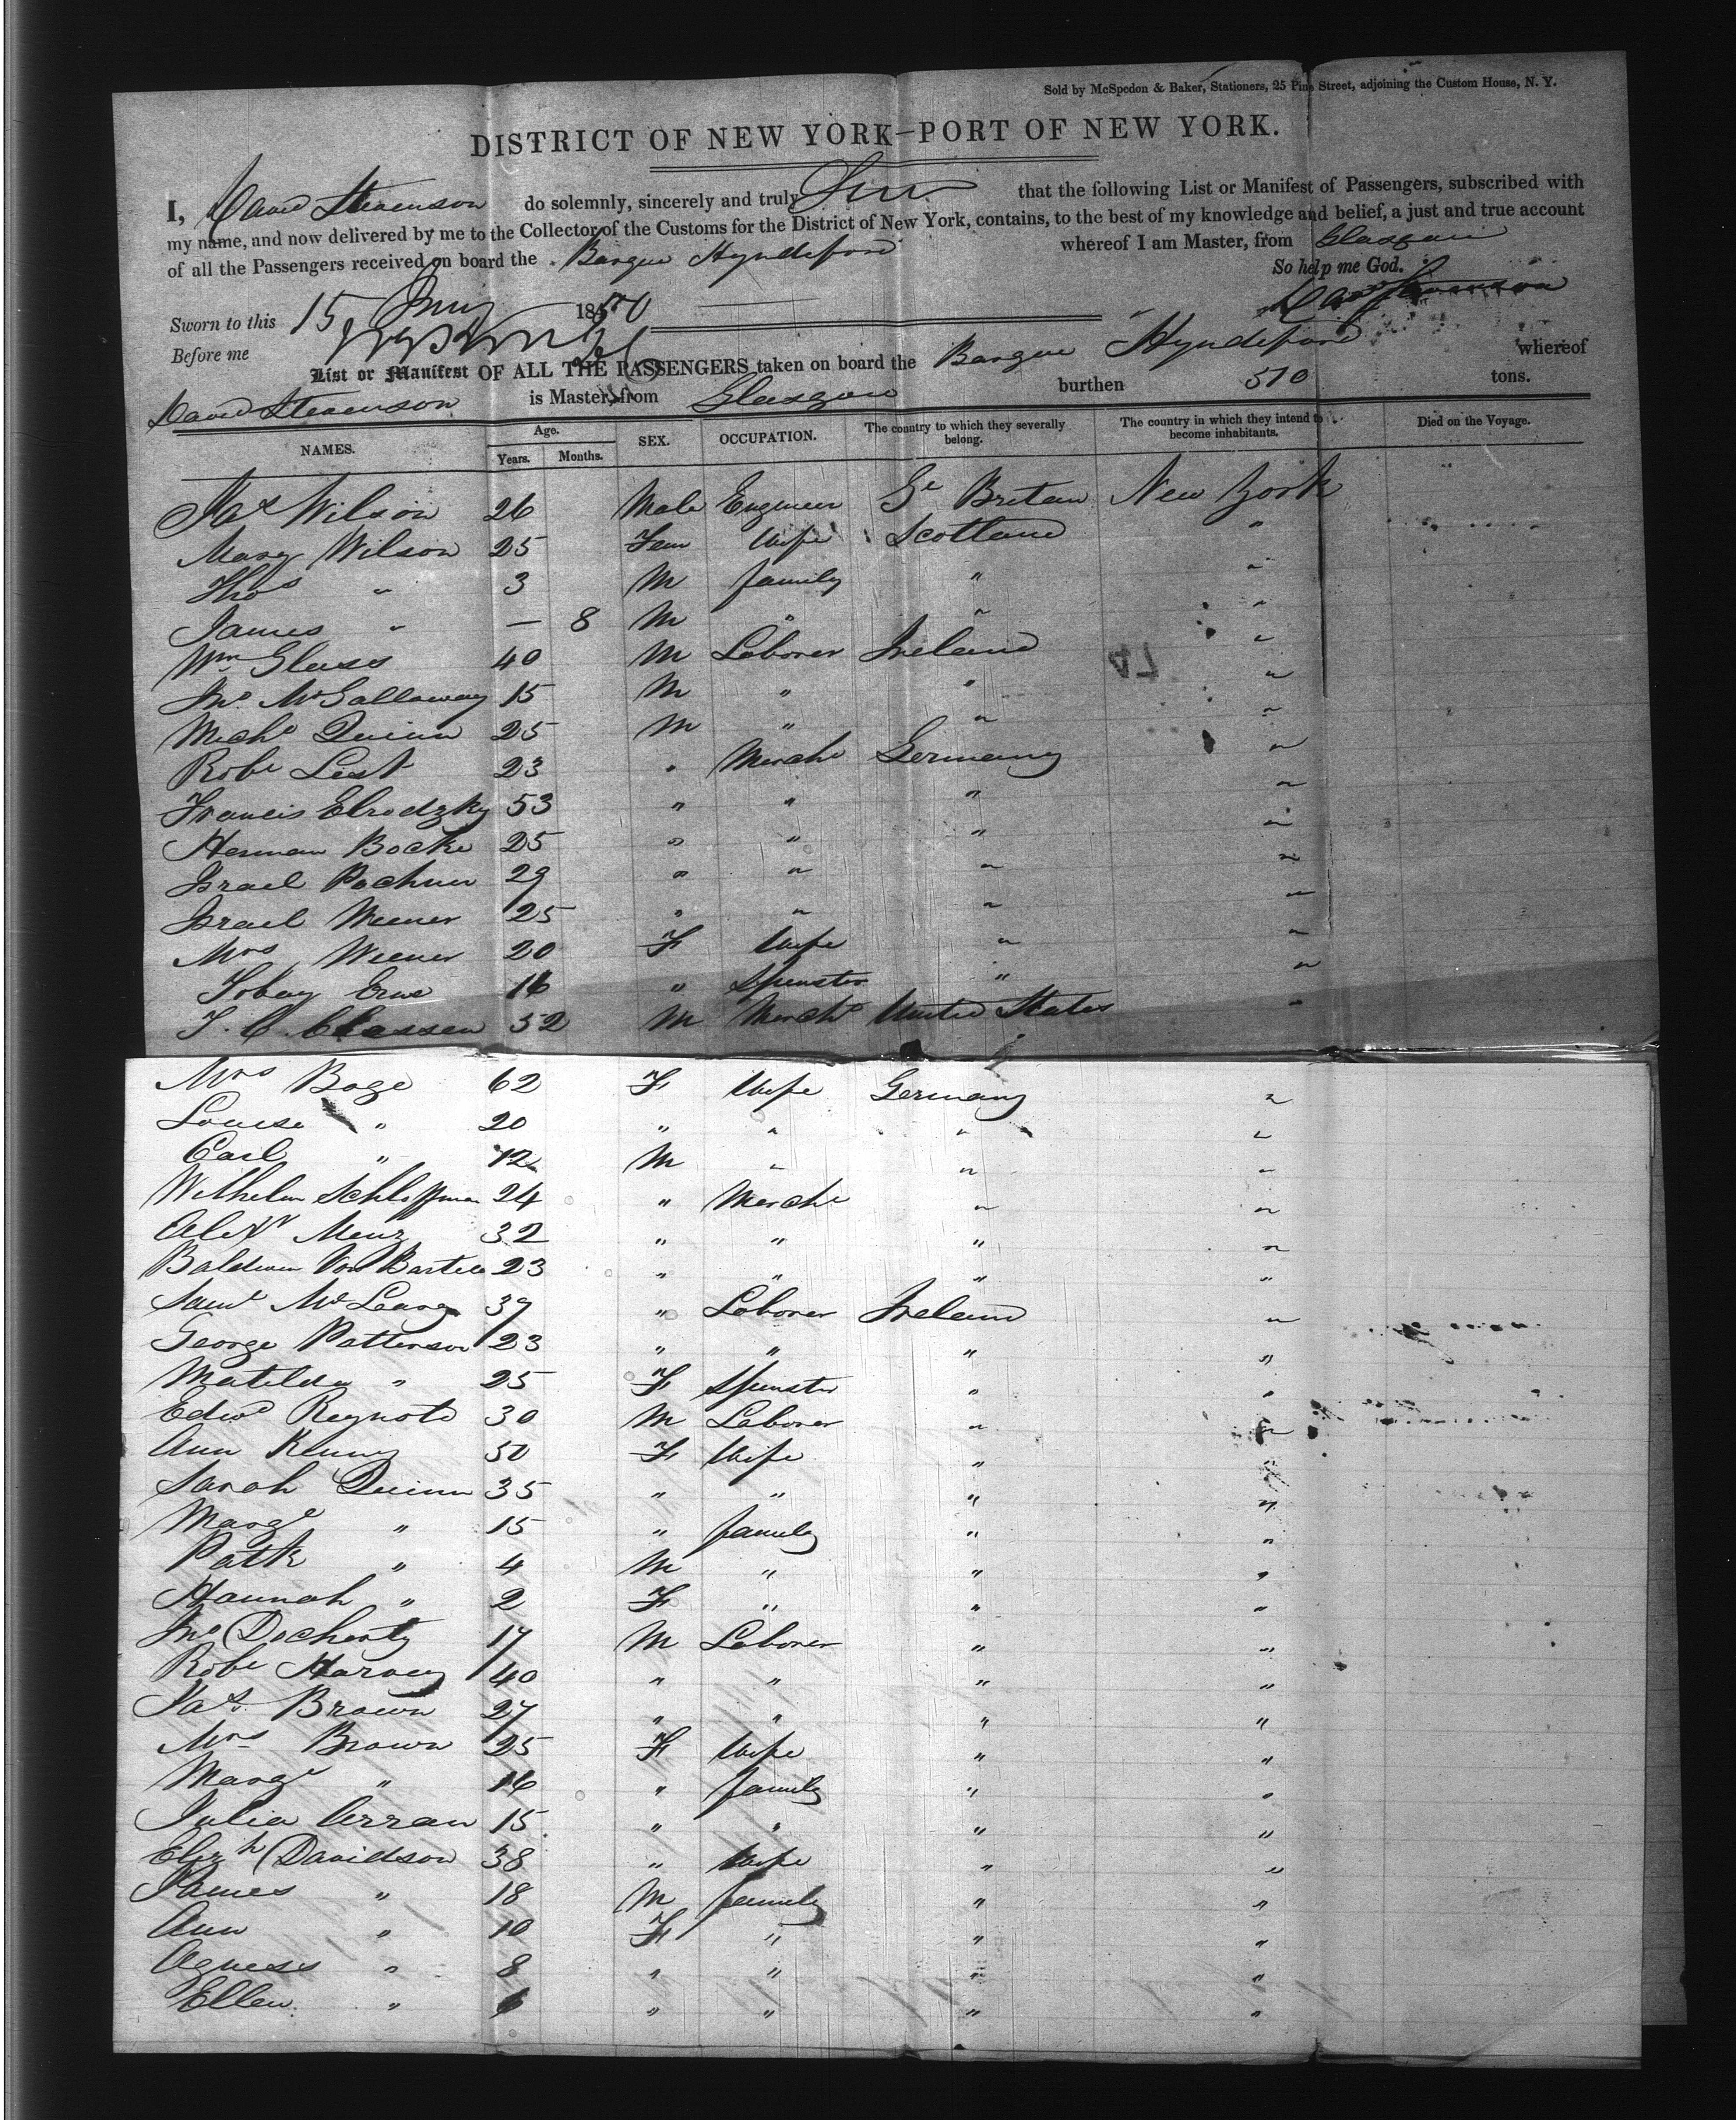 Sold by McSpedon & Baker, Stationers, 25 Pine Street, adjoining the Custom House, N. Y.
DISTRICT OF NEW YORK—PORT OF NEW YORK.
I, David Stevenson do solemnly, sincerely and truly that the following List or Manifest of Passengers, subscribed with
my name, and now delivered by me to the Collector of the Customs for the District of New York, contains, to the best of my knowledge and belief, a just and true account
of all the Passengers received on board the Barque Hyndeford whereof I am Master, from Glasgow
So help me God.
Sworn to this 15 1850 Davd Stevenson
Before me
List or Manifest OF ALL THE PASSENGERS taken on board the Barque Hyndeford whereof
David Stevenson is Master, from Glasgow burthen 510 tons.
NAMES. Age. Years. Months. SEX. OCCUPATION. The country to which they severally belong. The country in which they intend to become inhabitants. Died on the Voyage.
Jas Wilson 26 Male Engineer Gt Britain New York
Mary Wilson 25 Fem Wife Scotland "
Thos " 3 M family " "
James " — 8 M " " "
Wm Glass 40 M Laborer Ireland "
Jno McGalloway 15 M " " "
Michl Quinn 25 M " " "
Robt List 23 " Mercht Germany "
Francis Elrodzky 53 " " " "
Herman Bocke 25 " " " "
Israel Pachner 29 " " " "
Israel Weener 25 " " " "
Mrs Weener 20 F Wife " "
Tobay 16 " Spinster " "
T. C. Classen 52 M Mercht United States "
Mrs Boge 62 F Wife Germany "
Louise " 20 " " " "
Carl " 12 M " " "
Wilhelm 24 " Mercht " "
Alexr Menz 32 " " " "
Baldwin Von 23 " " " "
Saml McLeary 39 " Laborer Ireland "
George Patterson 23 " " " "
Matilda " 25 F Spinster " "
Edwd Reynold 30 M Laborer " "
Ann Kenny 50 F Wife " "
Sarah Quinn 35 " " " "
Margt " 15 " family " "
Patk " 4 M " " "
Hannah " 2 F " " "
Jno Docherty 17 M Laborer " "
Robt Harvey 40 " " " "
Jas. Brown 27 " " " "
Mrs Brown 25 F Wife " "
Margt " 16 " family " "
Julia Arran 15 " " " "
Elizth Davidson 38 " Wife " "
James " 18 M family " "
Ann " 10 F " " "
Agness " 8 " " " "
Ellen " " " " "